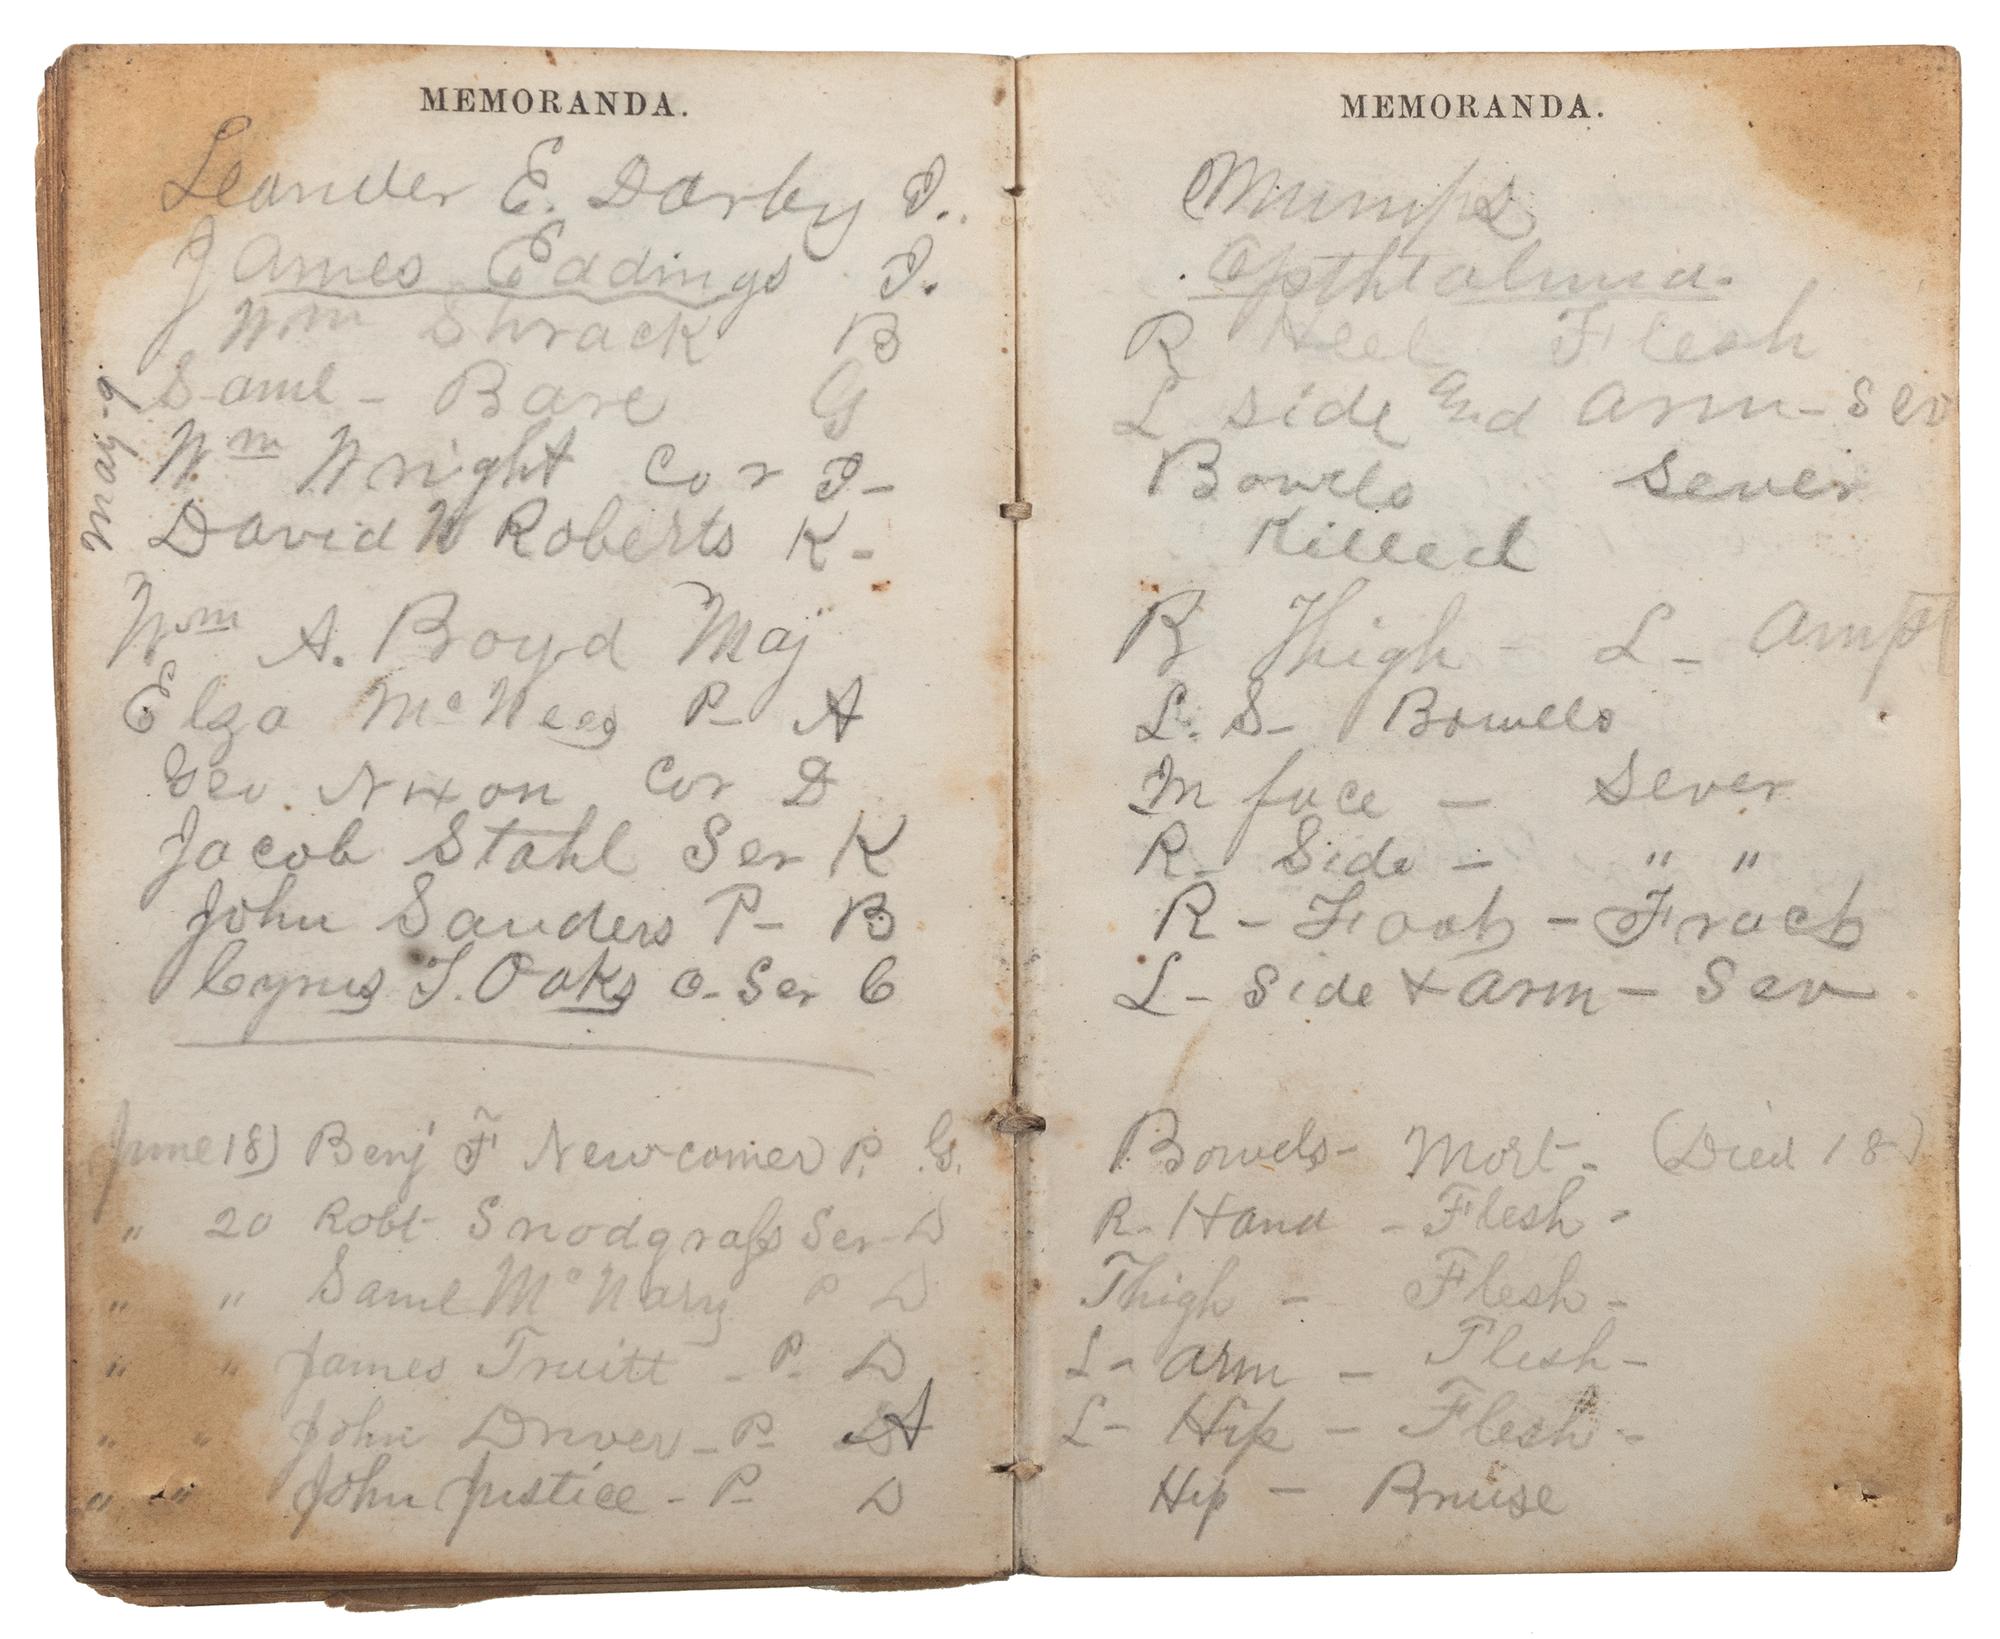 MEMORANDA.
Leander E. Darby I.
James Eddings I.
Wm Shrack B
Saml - Bare G
May 9
Wm Wright Cor I-
David W Roberts K-
Wm A. Boyd Maj
Elza McNees P- A
Geo Nixon Cor D
Jacob Stahl Ser K
John Sanders P- B
Cyrus T. Oaks O-Ser C
June 18) Benj F Newcomer P. G.
" 20 Robt Snodgrass Ser- D
" " Saml McNary P D
" " James Truitt - P- D
" " John Driver - P- A
" " John Justice - P- D
MEMORANDA.
Mumps
Opthtalmia.
R Heel Flesh
L side and Arm - Sev
Bowels Sever
Killed
R Thigh - L - Ampt
L. S- Bowels
In face - Sever
R- Side - " "
R - Foot - Fract
L - Side + Arm - Sev
Bowels - Mort - (Died 18)
R- Hand - Flesh -
Thigh - Flesh -
L- Arm - Flesh -
L- Hip - Flesh -
Hip - Bruise